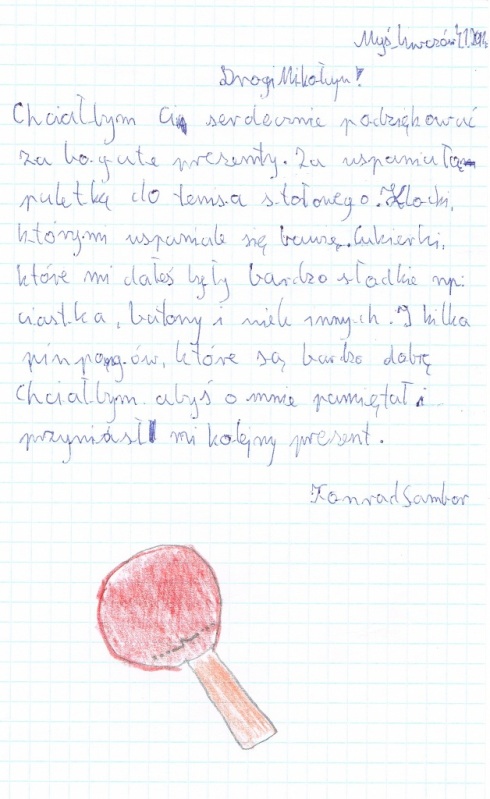 Drogi Mikołaju!
Chciałbym Ci serdecznie podziękować
za bogate prezenty. Za wspaniałą
paletką do tenisa stołowego. Klocki,
którymi wspaniale się bawię. Cukierki,
które mi dałeś były bardzo słodkie np:
ciastka, batony i wiele innych. I kilka
pinpongów, które są bardzo dobrę
Chciałbym abyś o mnie pamiętał i
przyniósł mi kolejny prezent.
Konrad Sambor